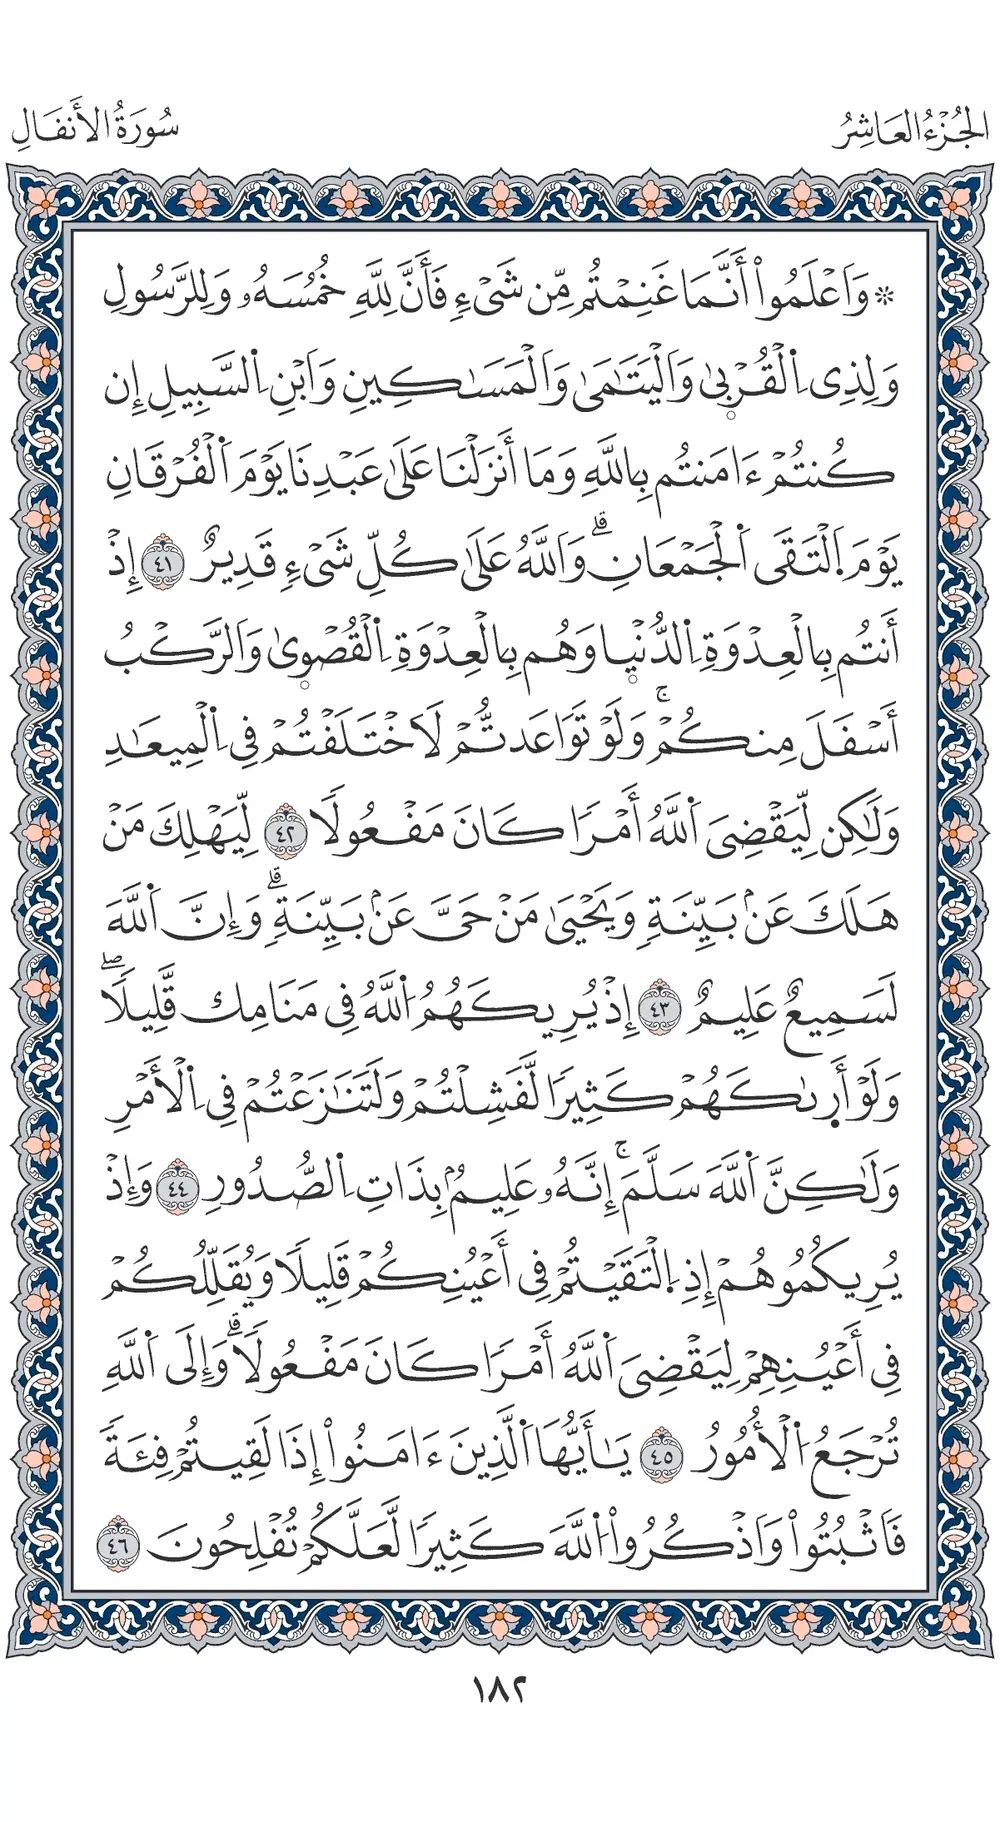 الجُزْءُ العَاشِرُ
سُورَةُ الأَنفَالِ
۞ وَاَعْلَمُواْ أَنَّمَا غَنِمْتُم مِّن شَيْءٖ فَأَنَّ لِلَّهِ خُمُسَهُۥ وَلِلرَّسُولِ
وَلِذِي اِ۬لْقُرْب۪ىٰ وَاَلْيَتَٰمَىٰ وَاَلْمَسَٰكِينِ وَاَبْنِ اِ۬لسَّبِيلِ إِن
كُنتُمْ ءَامَنتُم بِاللَّهِ وَمَا أَنزَلْنَا عَلَىٰ عَبْدِنَا يَوْمَ اَ۬لْفُرْقَانِ
يَوْمَ اَ۪لْتَقَى اَ۬لْجَمْعَانِۗ وَاَللَّهُ عَلَىٰ كُلِّ شَيْءٖ قَدِيرٌ ٤١ إِذْ
أَنتُم بِالْعِدْوَةِ اِ۬لدُّنْي۪ا وَهُم بِالْعِدْوَةِ اِ۬لْقُصْو۪ىٰ وَاَلرَّكْبُ
أَسْفَلَ مِنكُمْۚ وَلَوْ تَوَاعَدتُّمْ لَاَخْتَلَفْتُمْ فِي اِ۬لْمِيعَٰدِ
وَلَٰكِن لِّيَقْضِيَ اَ۬للَّهُ أَمْرٗا كَانَ مَفْعُولٗا ٤٢ لِّيَهْلِكَ مَنْ
هَلَكَ عَنۢ بَيِّنَةٖ وَيَحْيَىٰ مَنْ حَيَّ عَنۢ بَيِّنَةٖۗ وَإِنَّ اَ۬للَّهَ
لَسَمِيعٌ عَلِيمٌ ٤٣ إِذْ يُرِيكَهُمُ اُ۬للَّهُ فِي مَنَامِك قَّلِيلٗاۖ
وَلَوْ أَر۪ىٰكَهُمْ كَثِيرٗا لَّفَشِلْتُمْ وَلَتَنَٰزَعْتُمْ فِي اِ۬لْأَمْرِ
وَلَٰكِنَّ اَ۬للَّهَ سَلَّمَۚ إِنَّهُۥ عَلِيمُۢ بِذَاتِ اِ۬لصُّدُورِ ٤٤ وَإِذْ
يُرِيكُمُوهُمْ إِذِ اِ۪لْتَقَيْتُمْ فِي أَعْيُنِكُمْ قَلِيلٗا وَيُقَلِّلُكُمْ
فِي أَعْيُنِهِمْ لِيَقْضِيَ اَ۬للَّهُ أَمْرٗا كَانَ مَفْعُولٗاۗ وَإِلَى اَ۬للَّهِ
تُرْجَعُ اُ۬لْأُمُورُ ٤٥ يَٰأَيُّهَا اَ۬لَّذِينَ ءَامَنُواْ إِذَا لَقِيتُمْ فِئَةٗ
فَاَثْبُتُواْ وَاَذْكُرُواْ اُ۬للَّهَ كَثِيرٗا لَّعَلَّكُمْ تُفْلِحُونَ ٤٦
١٨٢